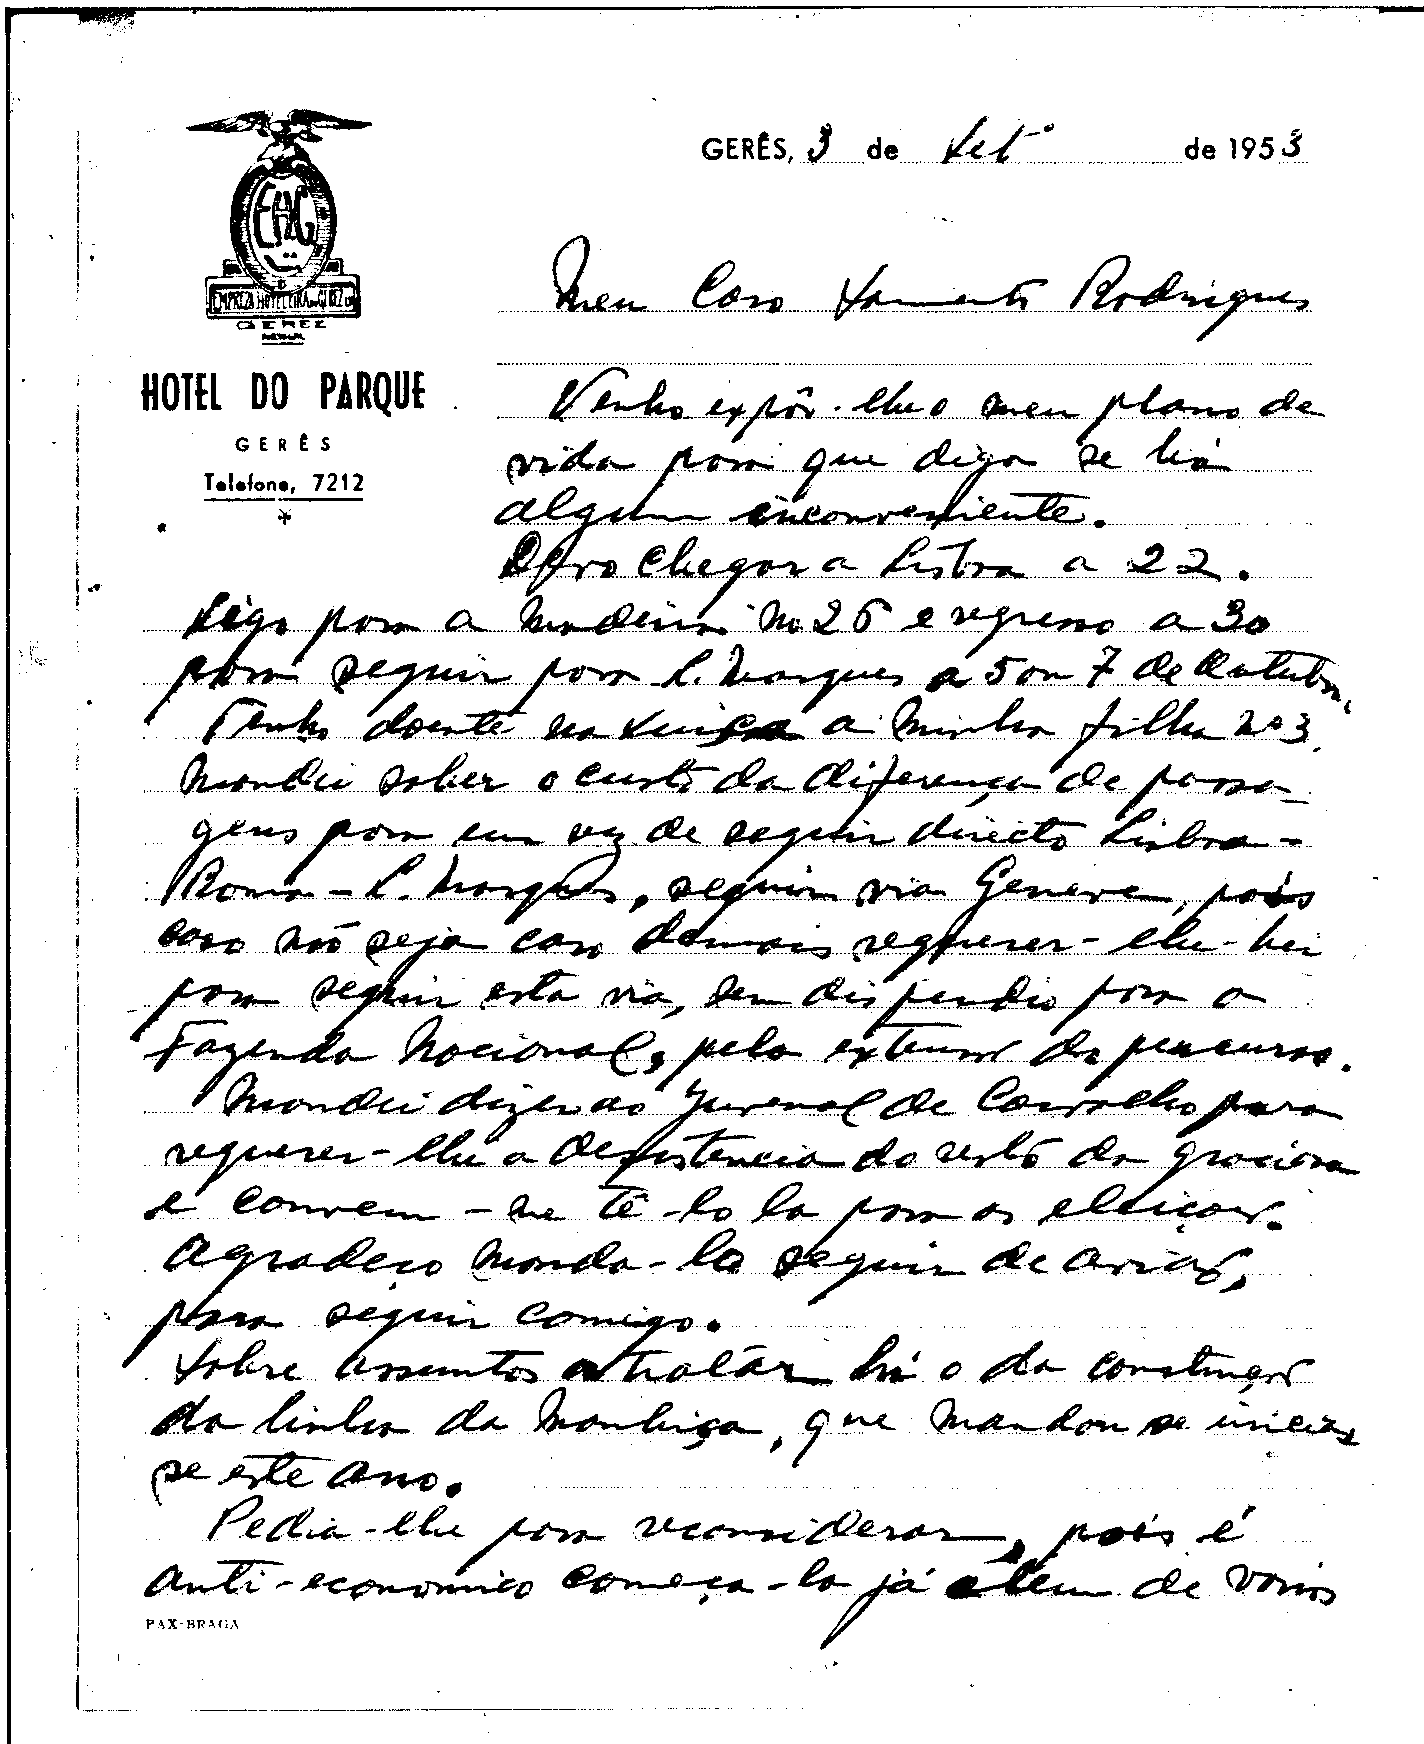 GERÊS, 3 de Set.º de 1953
EHG
EMPREZA HOTELEIRA DO GEREZ
GEREZ
HOTEL DO PARQUE
GERÊS
Telefone, 7212
Meu Caro Sarmento Rodrigues
Venho expôr-lhe o meu plano de
vida para que diga se há
algum inconveniente.
Devo chegar a Lisboa a 22.
Sigo para a Madeira no 26 e regresso a 30
para seguir para L. Marques a 5 ou 7 de Outubro.
Tenho doente na Suiça a minha filha nº 3.
Mandei saber o custo da diferença de passa-
gens para em vez de seguir directo Lisboa-
Roma-L. Marques, seguir via Geneve, pois
caso não seja caro demais requerer-lhe-hei
para seguir esta via, sem dispendio para a
Fazenda Nacional, pela extensão do percurso.
Mandei dizer ao Juvenal de Carvalho para
requerer-lhe a desistencia do resto da graciosa
e convem-me tê-lo lá para as eleições.
Agradeço manda-lo seguir de avião,
para seguir comigo.
Sobre assuntos a tratar há o da construção
da linha da Manhiça, que mandou se inicias
se este ano.
Pedia-lhe para reconsiderar, pois é
anti-economico começa-la já alem de varios
PAX-BRAGA